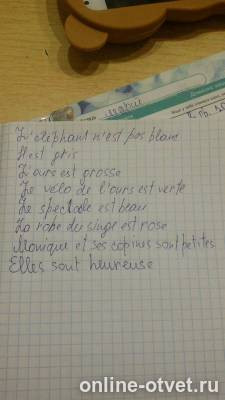 L'éléphant n'est pas blanc
Il est gris
L'ours est grosse
Le vélo de l'ours est verte
Le spectacle est beau
La robe du singe est rose
Monique et ses copines sont petites
Elles sont heureuse
online-otvet.ru